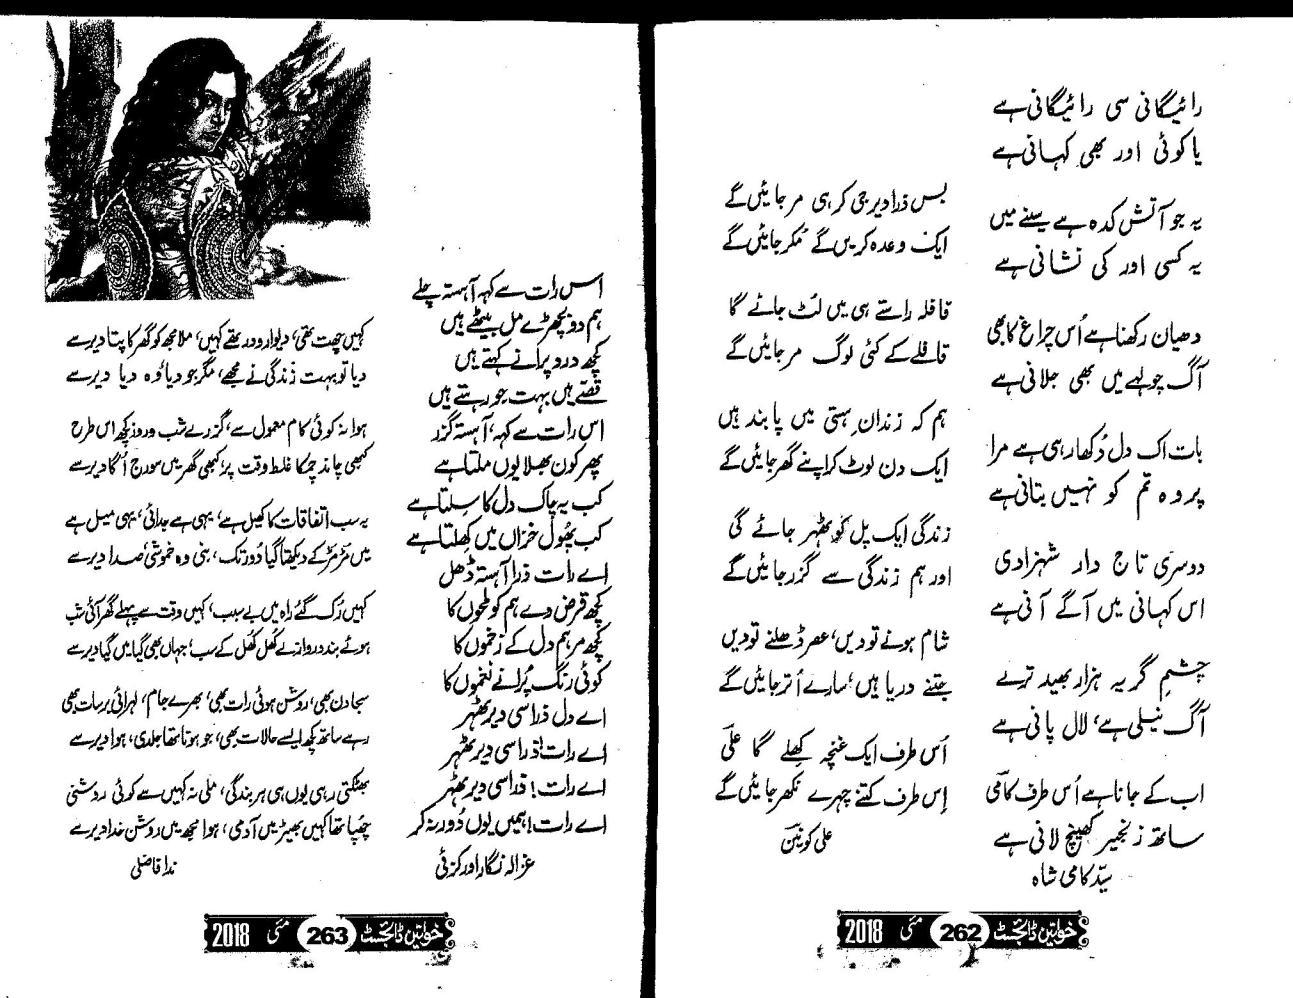 رائیگانی سی رائیگانی ہے
یا کوئی اور بھی کہانی ہے
یہ جو آتش کدہ ہے سینے میں
یہ کسی اور کی نشانی ہے
دھیان رکھنا ہے اُس چراغ کا بھی
آگ چولہے میں بھی جلانی ہے
بات اک دل دُکھا رہی ہے مرا
پر وہ تم کو نہیں بتانی ہے
دوسری تاج دار شہزادی
اس کہانی میں آگے آنی ہے
چشمِ گریہ ہزار بھید ترے
آگ نیلی ہے، لال پانی ہے
اب کے جانا ہے اُس طرف کامیؔ
ساتھ زنجیر کھینچ لانی ہے
سیّد کامی شاہ
بس ذرا دیر جی کر ہی مر جائیں گے
ایک وعدہ کریں گے مُکر جائیں گے
قافلہ راستے ہی میں لُٹ جائے گا
قافلے کے کئی لوگ مر جائیں گے
ہم کہ زندانِ ہستی میں پابند ہیں
ایک دن لوٹ کر اپنے گھر جائیں گے
زندگی ایک پل کو ٹھہر جائے گی
اور ہم زندگی سے گزر جائیں گے
شام ہونے تو دیں، عصر ڈھلنے تو دیں
جتنے دریا ہیں، سارے اُتر جائیں گے
اُس طرف ایک غنچہ کھلے گا علیؔ
اِس طرف کتنے چہرے نکھر جائیں گے
علی کونین
خواتین ڈائجسٹ 262 مئی 2018
اس رات سے کہہ آہستہ چلے
ہم دو بچھڑے مل بیٹھے ہیں
کچھ درد پرانے کہتے ہیں
قصّے ہیں بہت جو رہتے ہیں
اس رات سے کہہ، آہستہ گزر
پھر کون بھلا یوں ملتا ہے
کب یہ چاک دل کا سِلتا ہے
کب پھُول خزاں میں کھلتا ہے
اے رات ذرا آہستہ ڈھل
کچھ قرض دے ہم کو لمحوں کا
کچھ مرہم دل کے زخموں کا
کوئی رنگ پُرانے نغموں کا
اے دل ذرا سی دیر ٹھہر
اے رات! ذرا سی دیر ٹھہر
اے رات! ذرا سی دیر ٹھہر
اے رات! ہمیں یوں دُور نہ کر
غزالہ نگار اورکزئی
کہیں چھت تھی، دیوار و در تھے کہیں، ملا مجھ کو گھر کا پتا دیر سے
دیا تو بہت زندگی نے مجھے، مگر جو دیا، وہ دیا دیر سے
ہوا نہ کوئی کام معمول سے، گزرے شب و روز کچھ اس طرح
کبھی چاند چمکا غلط وقت پر، کبھی گھر میں سورج اُگا دیر سے
یہ سب اتفاقات کا کھیل ہے، یہی ہے جدائی، یہی میل ہے
میں مڑ مڑ کے دیکھتا گیا دُور تک، بنی وہ خموشی، صدا دیر سے
کہیں رُک گئے راہ میں بے سبب، کہیں وقت سے پہلے گھر آئی شب
ہوئے بند دروازے کھُل کھُل کے سب، جہاں بھی گیا میں گیا دیر سے
سجا دن بھی، روشن ہوئی رات بھی، بھرے جام، لہرائی برسات بھی
رہے ساتھ کچھ ایسے حالات بھی، جو ہونا تھا جلدی، ہوا دیر سے
بھٹکتی رہی یوں ہی ہر بندگی، ملی نہ کہیں سے کوئی روشنی
چھُپا تھا کہیں بھیڑ میں آدمی، ہوا مجھ میں روشن خدا دیر سے
ندا فاضلی
خواتین ڈائجسٹ 263 مئی 2018